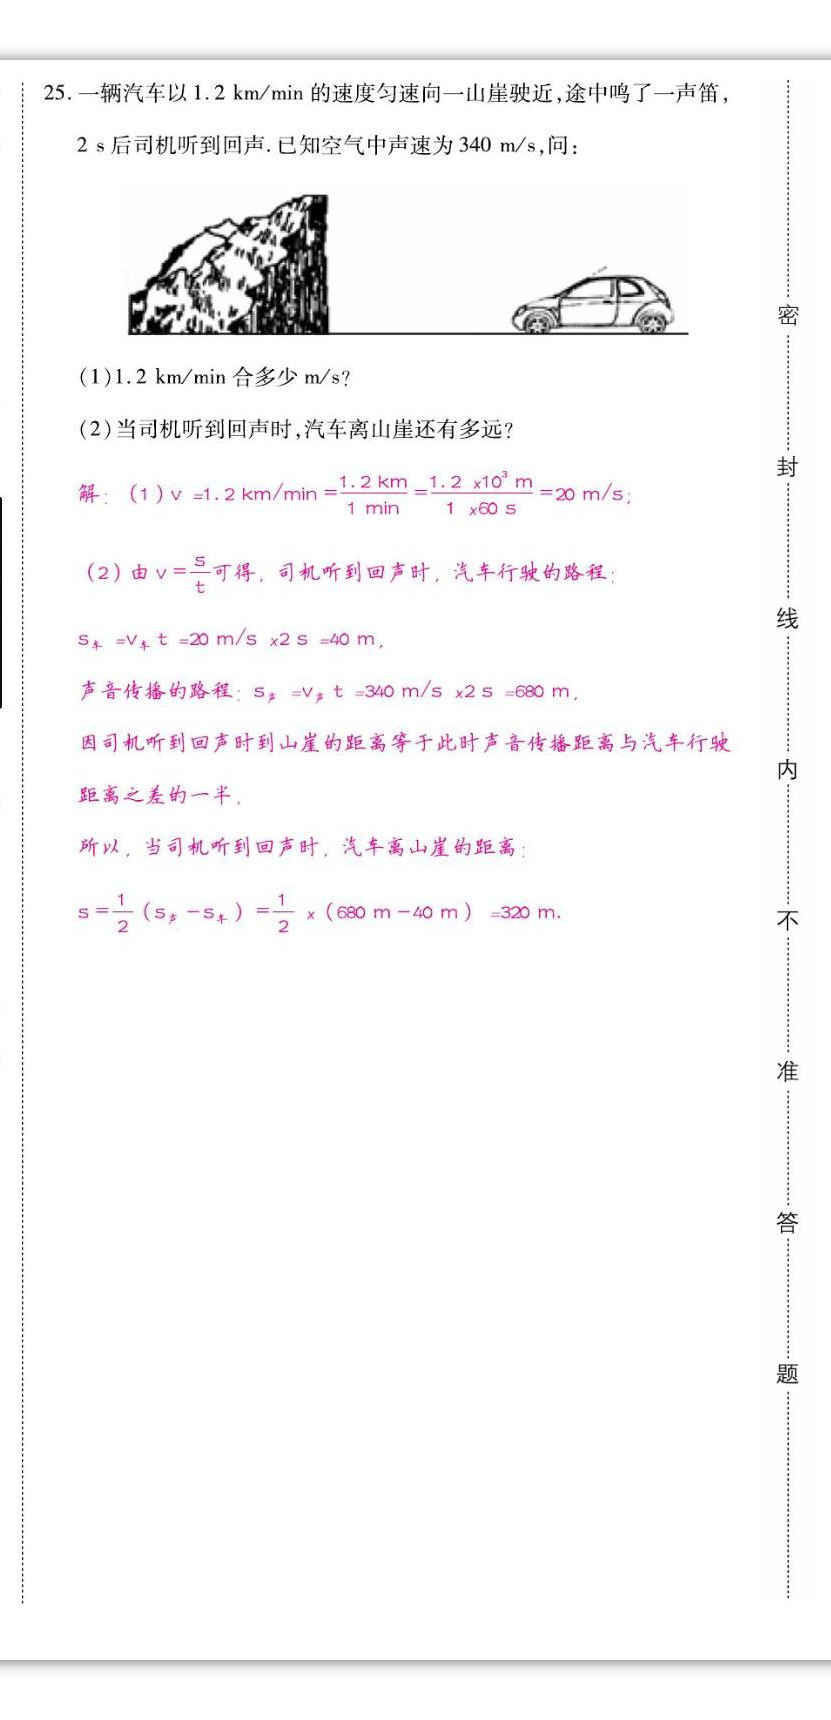 25. 一辆汽车以 1.2 km/min 的速度匀速向一山崖驶近,途中鸣了一声笛,
2 s 后司机听到回声.已知空气中声速为 340 m/s,问:
(1)1.2 km/min 合多少 m/s?
(2)当司机听到回声时,汽车离山崖还有多远?
解:(1)v =1.2 km/min =1.2 km/1 min =1.2 ×10³ m/1 ×60 s =20 m/s;
(2)由 v=s/t 可得,司机听到回声时,汽车行驶的路程:
s车 =v车 t =20 m/s ×2 s =40 m,
声音传播的路程:s声 =v声 t =340 m/s ×2 s =680 m,
因司机听到回声时到山崖的距离等于此时声音传播距离与汽车行驶
距离之差的一半,
所以,当司机听到回声时,汽车离山崖的距离:
s=1/2 (s声 -s车) =1/2 ×(680 m-40 m) =320 m.
密
封
线
内
不
准
答
题